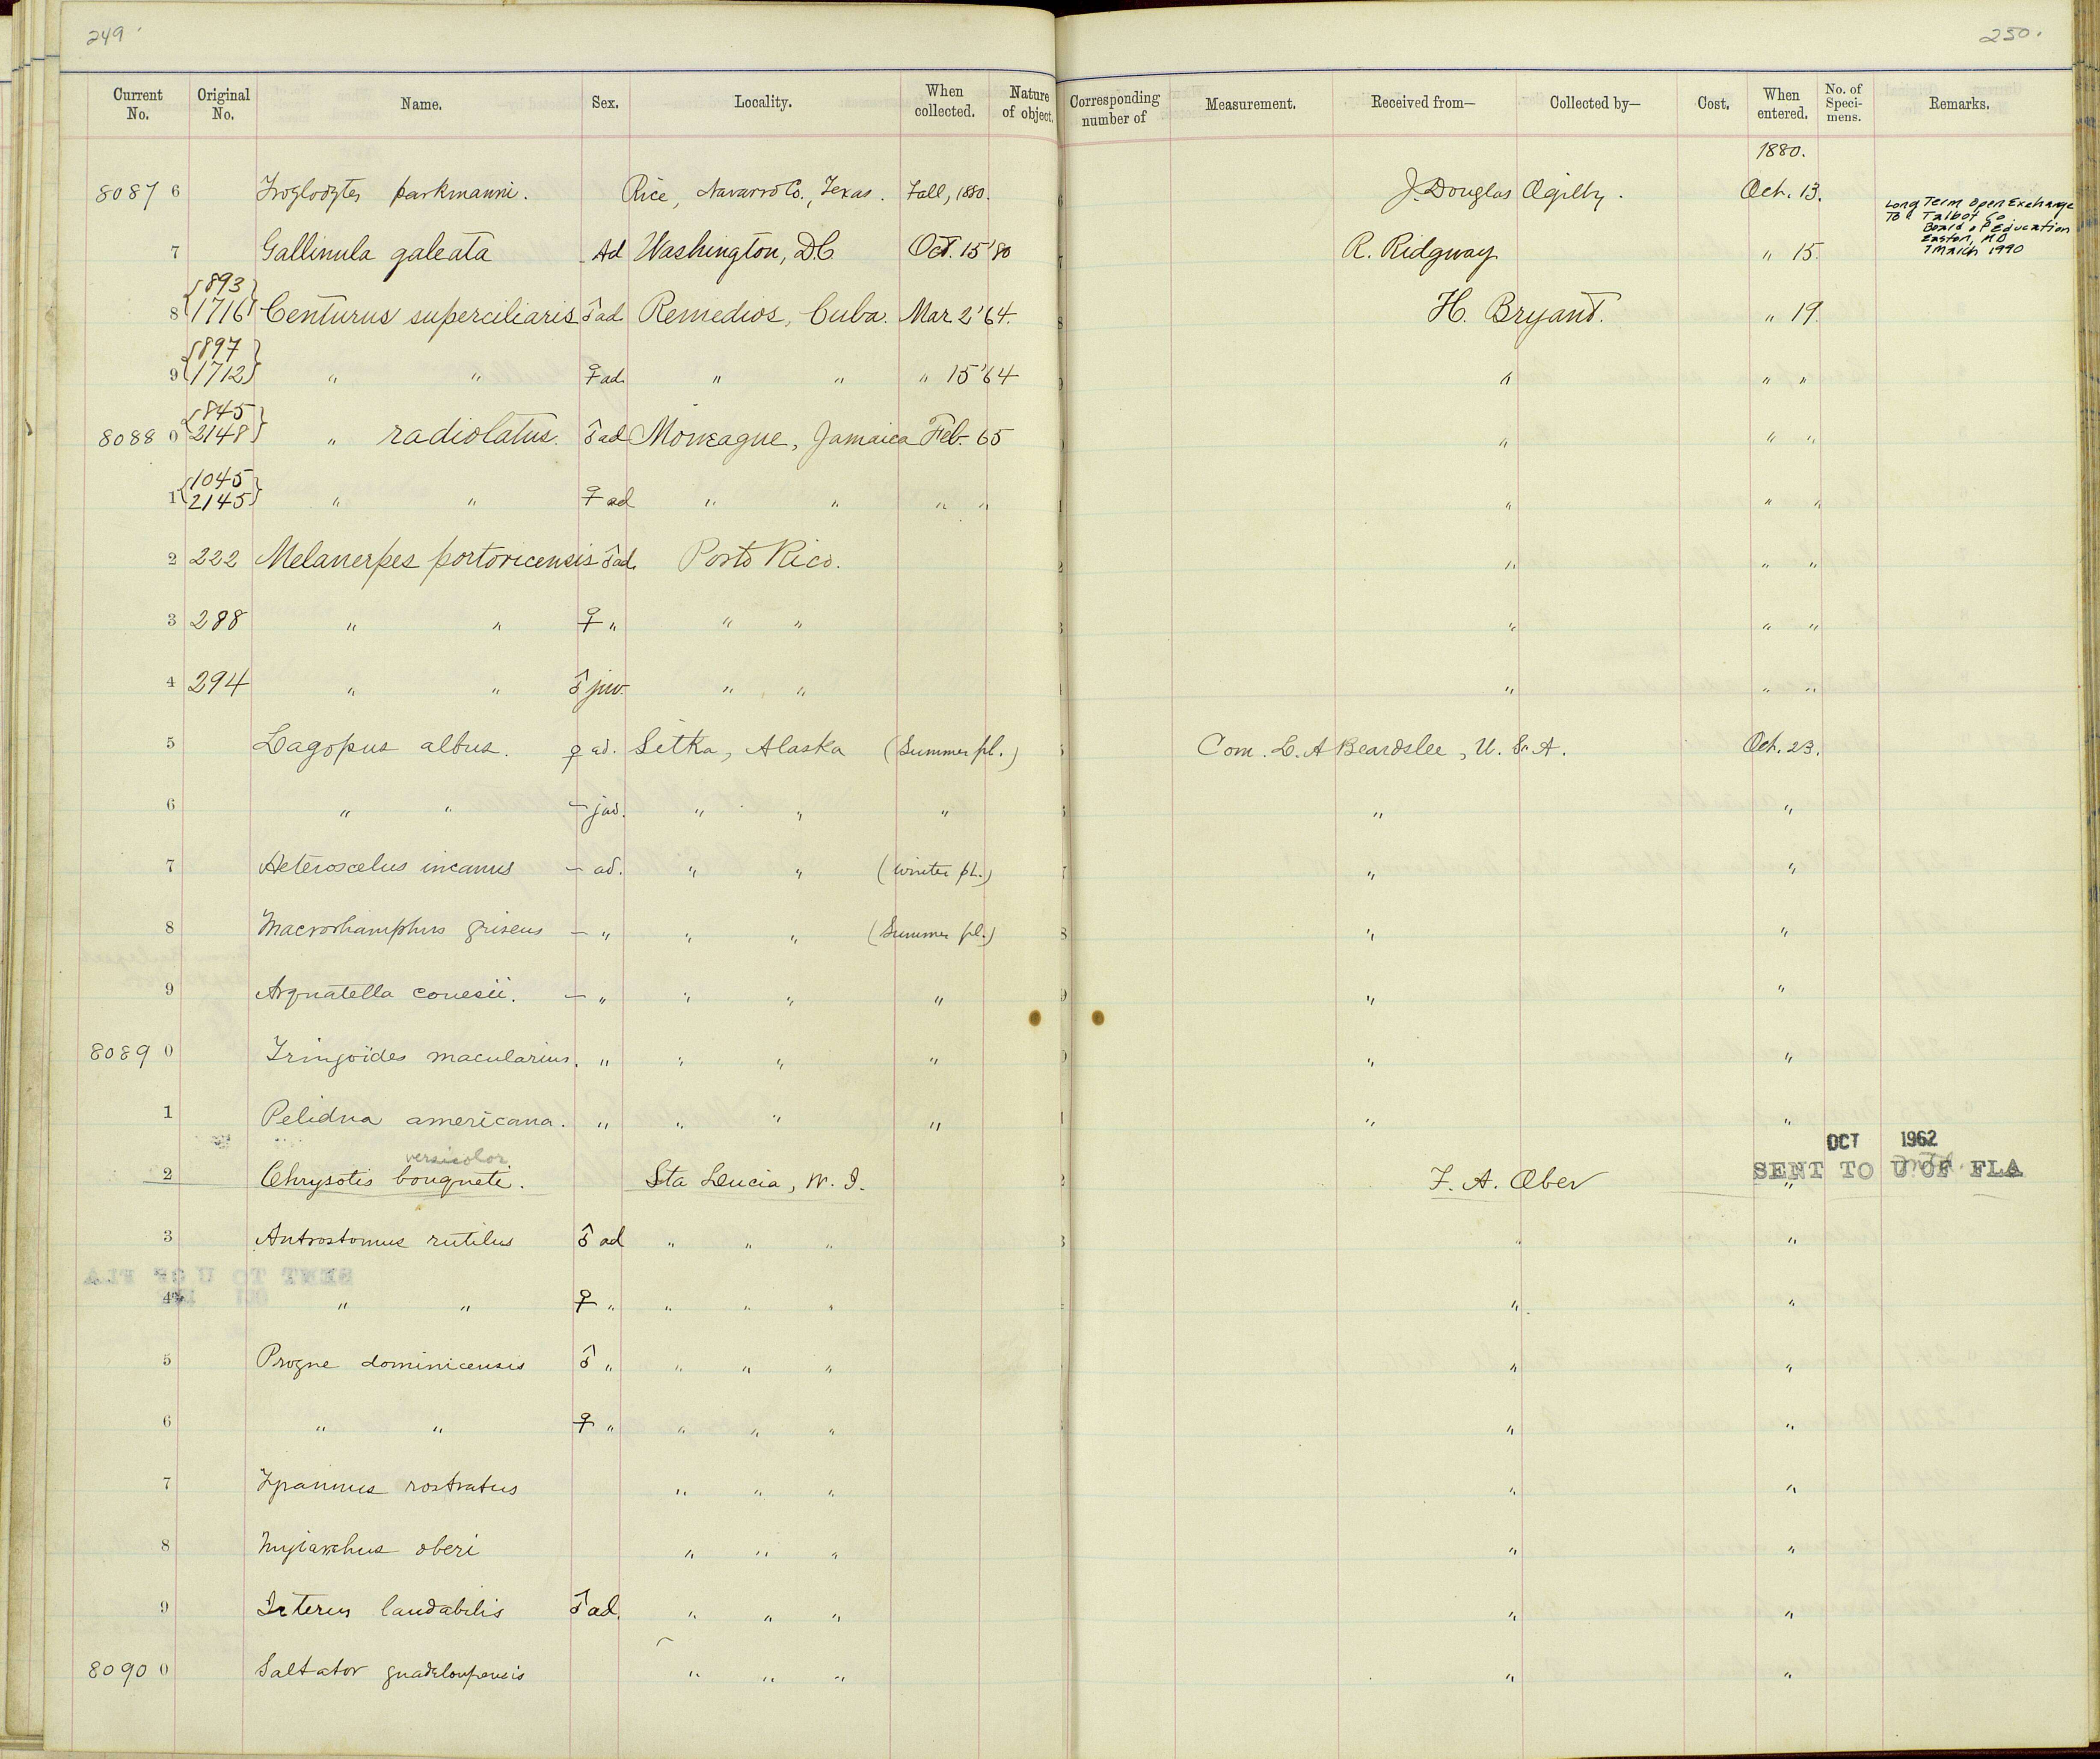 249
250.
Current No. Original No. Name. Sex. Locality. When collected. Nature of object. Corresponding number of Measurement. Received from— Collected by— Cost. When entered. No. of Speci-mens. Remarks.
1880.
8087 6 Troglodytes parkmanni. Rice, Navarro Co., Texas. Fall, 1880. J. Douglas Ogilby. Oct. 13.
Long Term Open Exchange
To: Talbot Co
Board of Education
Easton, MD
7 March 1990
7 Gallinula galeata Ad Washington, D.C Oct. 15 '80 R. Ridgway " 15.
8 {893 1716} Centurus superciliaris ♂ ad. Remedios, Cuba. Mar. 2 '64. H. Bryant. " 19.
9 {897 1712} " " ♀ ad. " " " 15 '64 " " "
8088 0 {845 2148} " radiolatus. ♂ ad Moneague, Jamaica Feb. 65 " " "
1 {1045 2145} " " ♀ ad " " " " " " "
2 222 Melanerpes portoricensis ♂ ad. Porto Rico. " " "
3 288 " " ♀ " " " " " "
4 294 " " ♂ juv. " " " " "
5 Lagopus albus. ♀ ad. Sitka, Alaska (Summer pl.) Com. L. A Beardslee, U. S. A. Oct. 23.
6 " " – juv. " " " " "
7 Heteroscelus incanus – ad. " " (Winter pl.) " "
8 Macrorhamphus griseus – " " " (Summer pl.) " "
9 Arquatella couesii. – " " " " " "
8089 0 Tringoïdes macularius. " " " " " "
1 Pelidna americana. " " " " " "
versicolor
OCT 1962
2 Chrysotis bouqueti. Sta Lucia, W. I. F. A. Ober "
SENT TO U OF FLA
3 Antrostomus rutilus ♂ ad " " " " "
4 " " ♀ " " " " " "
5 Progne dominicensis ♂ " " " " " "
6 " " ♀ " " " " " "
7 Tyrannus rostratus " " " " "
8 Myiarchus oberi " " " " "
9 Icterus laudabilis ♂ ad. " " " " "
8090 0 Saltator guadeloupensis " " " " "